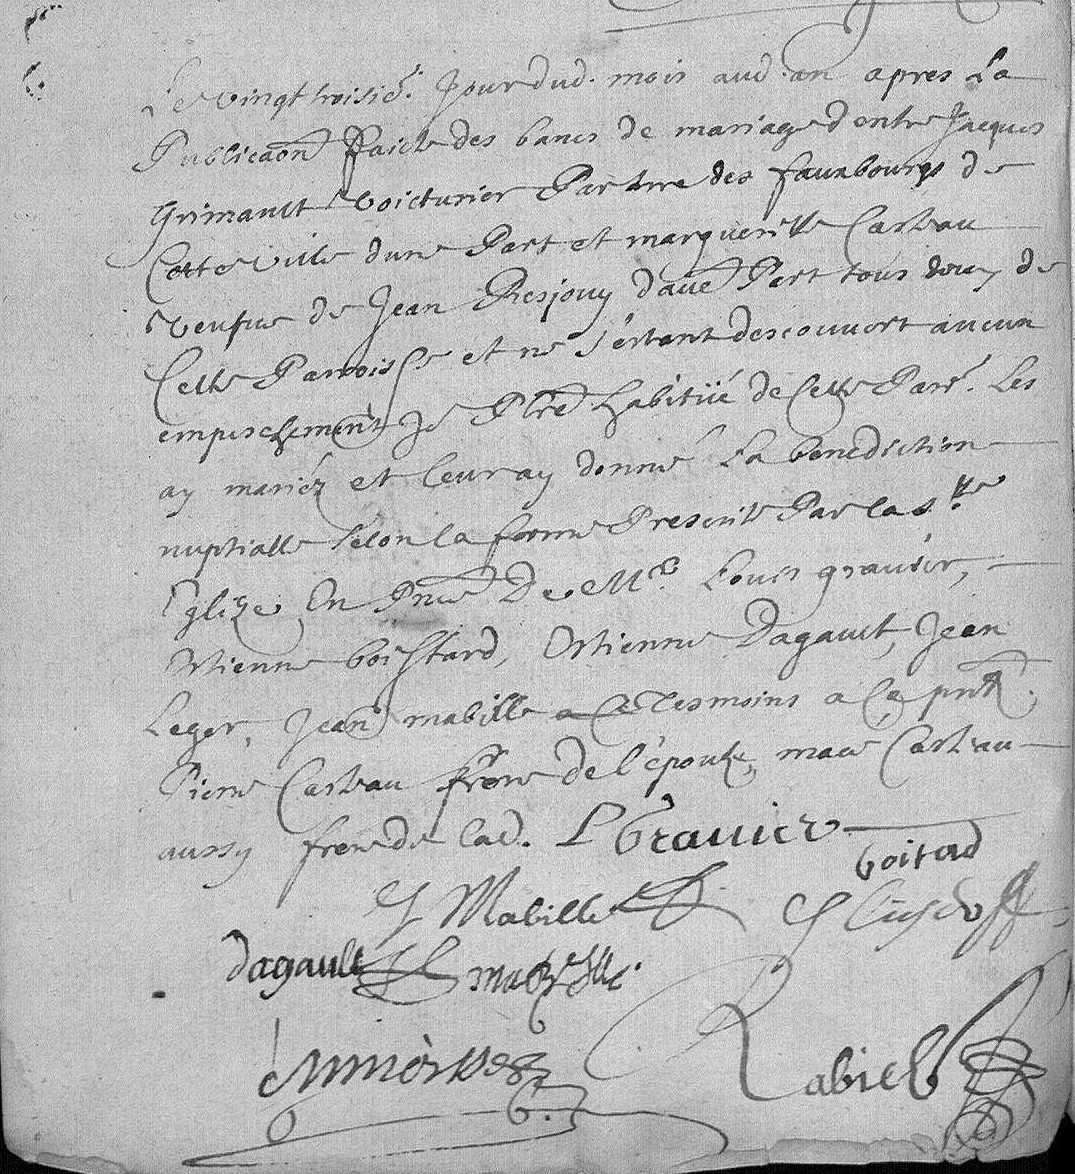 Le vingt troisie. Jour dud. mois aud. an apres La
Publicaon faicte des bancs de mariage d'entre Jacques
Grimault voicturier Par terre des fauxbourgs de
Cette ville dune Part et margueritte Casteau
veufve de Jean Resjouy d'aue Part tous deux de
Cette Parroisse et ne s'estant descouvert aucun
empeschement Je Pbre habitüé de Cette Parr. Les
ay mariéz et leur ay donné La benediction
nuptialle selon la forme Prescrite Par la s.tte
Eglize En Pnce De Mre Louis gravier,
Estienne boistard, Estienne Dagault, Jean
Leger, Jean mabille tesmoins a Ce pnts.
Pierre Casteau frere de l'épouze, mace Casteau
aussy frere de lad. L Gravier
boitard
J Mabille J Leger
dagault
Rabiel